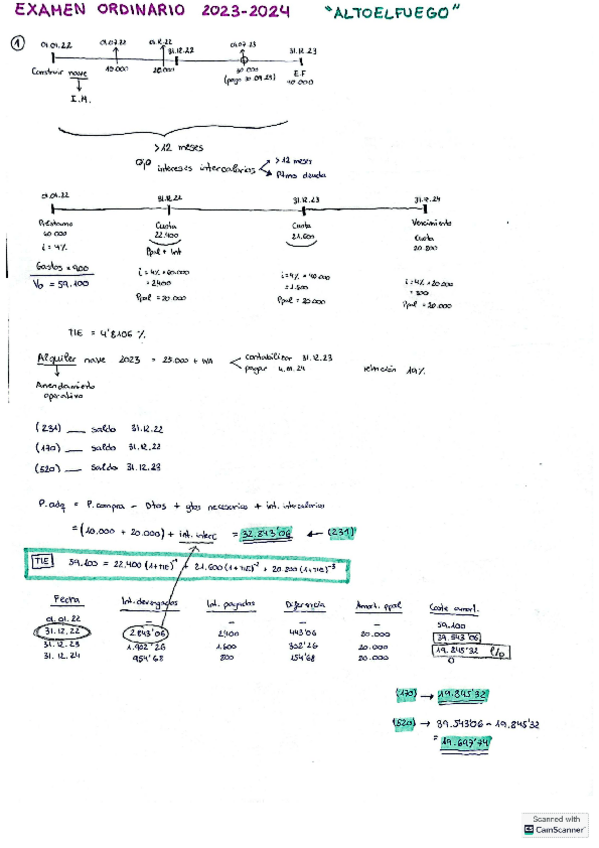 EXAMEN ORDINARIO 2023-2024 "ALTOELFUEGO"
① 01.01.22 01.07.22 01.12.22 31.12.22 01.07.23 31.12.23
Construir nave 10.000 20.000 E.F
(pago 30.09.23) 40.000
I.M.
>12 meses
intereses intercalarios >12 meses
Ptmo deuda
01.01.22 31.12.22 31.12.23 31.12.24
Préstamo Cuota Cuota Vencimiento
60.000 22.400 21.600 Cuota
i = 4% Ppal + Int 20.800
Gastos = 900 i = 4% × 60.000 i = 4% × 40.000 i = 4% × 20.000
V₀ = 59.100 = 2400 = 1.600 = 800
Ppal = 20.000 Ppal = 20.000 Ppal = 20.000
TIE = 4'8106 %
Alquiler nave 2023 = 25.000 + IVA contabilizar 31.12.23 retención 19%
pagar
Arrendamiento
operativo
(231) saldo 31.12.22
(170) saldo 31.12.22
(520) saldo 31.12.23
P.adq = P.compra - Dtos + gtos necesarios + int. intercalarios
= (10.000 + 20.000) + int. interc = 32.843'06 ← (231)
TIE 59.100 = 22.400 (1+TIE)⁻¹ + 21.600 (1+TIE)⁻² + 20.800 (1+TIE)⁻³
Fecha Int. devengados Int. pagados Diferencia Amort. ppal Coste amort.
01.01.22 — — — — 59.100
31.12.22 2.843'06 2.400 443'06 20.000 39.543'06
31.12.23 1.902'26 1.600 302'26 20.000 19.845'32 l/p
31.12.24 954'68 800 154'68 20.000 0
(170) → 19.845'32
(520) → 39.543'06 - 19.845'32
= 19.697'74
Scanned with
CS CamScanner